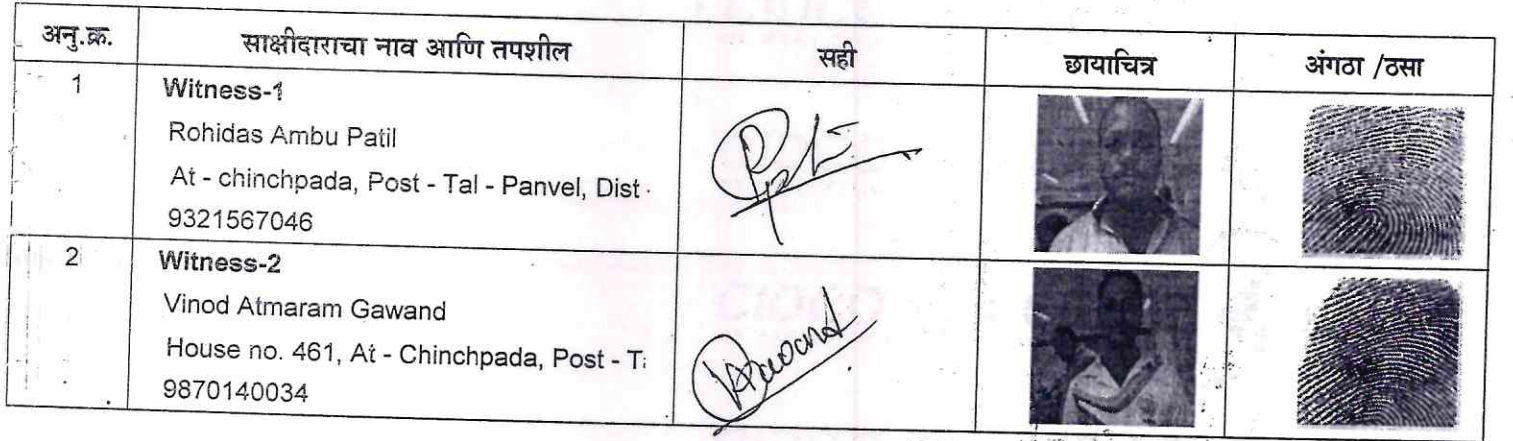 अनु.क्र. साक्षीदाराचा नाव आणि तपशील सही छायाचित्र अंगठा /ठसा
1 Witness-1
Rohidas Ambu Patil
At - chinchpada, Post - Tal - Panvel, Dist
9321567046
2 Witness-2
Vinod Atmaram Gawand
House no. 461, At - Chinchpada, Post - T
9870140034